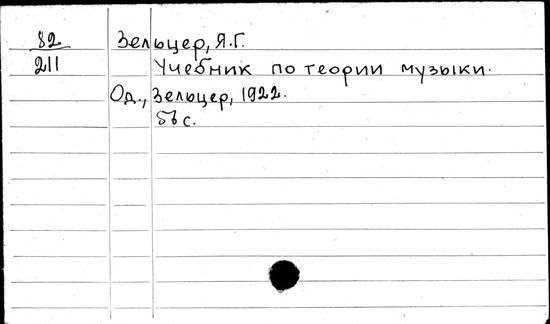 82 Зельцер, Я.Г.
211 Учебник по теории музыки.
Од., Зельцер, 1922.
56 с.